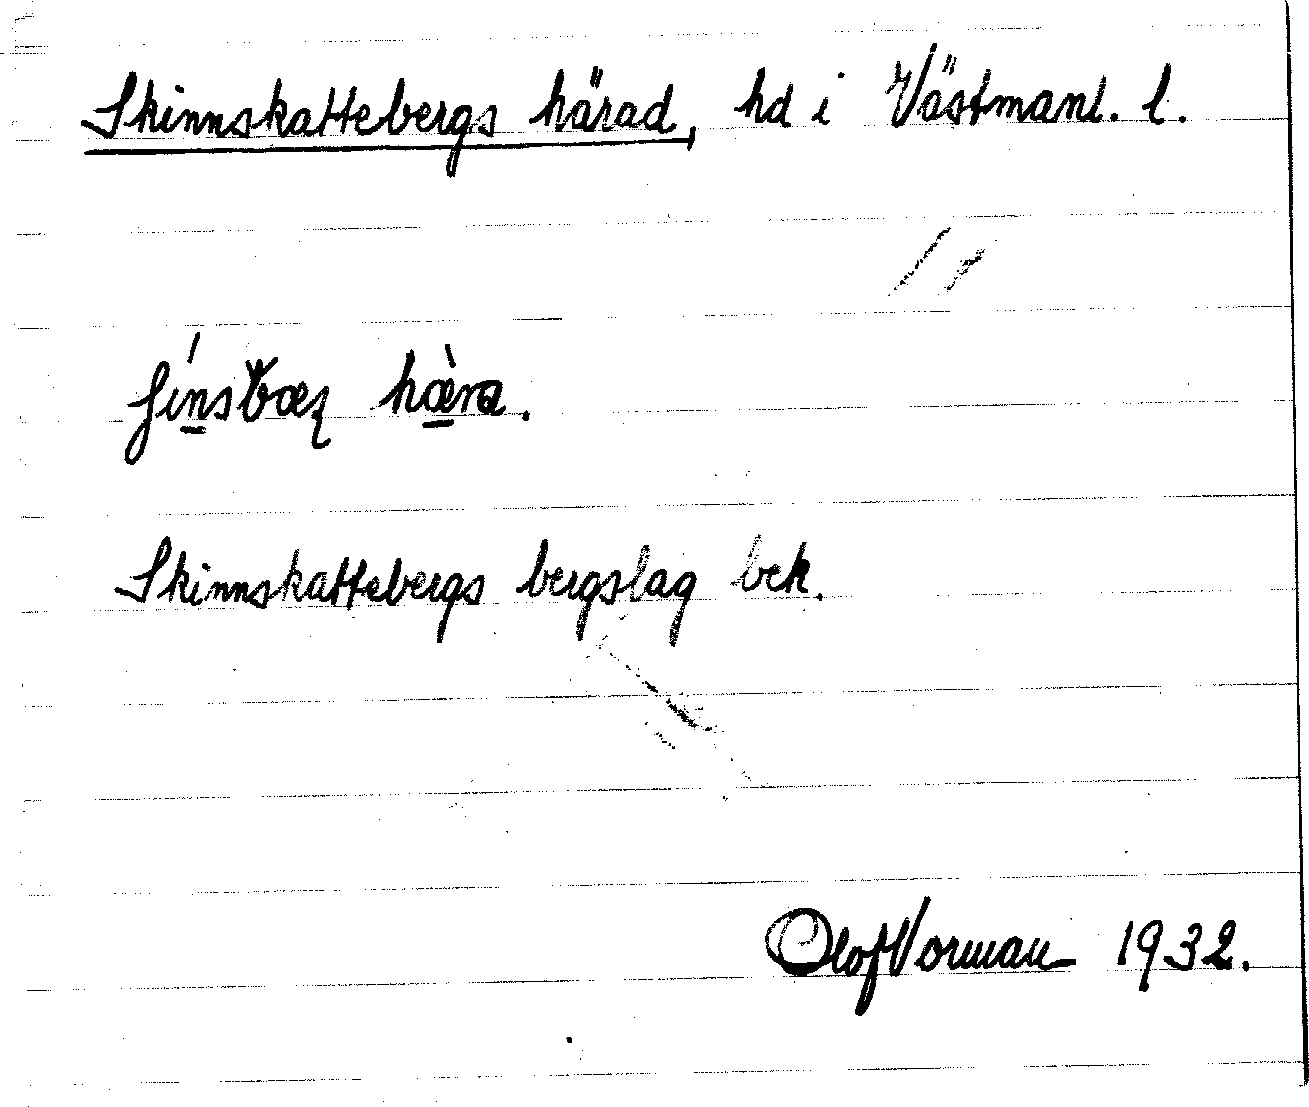 Skinnskattebergs härad, hd i Västmanl. l.
Skinnskattebergs bergslag bek.
Olof Vorman 1932.